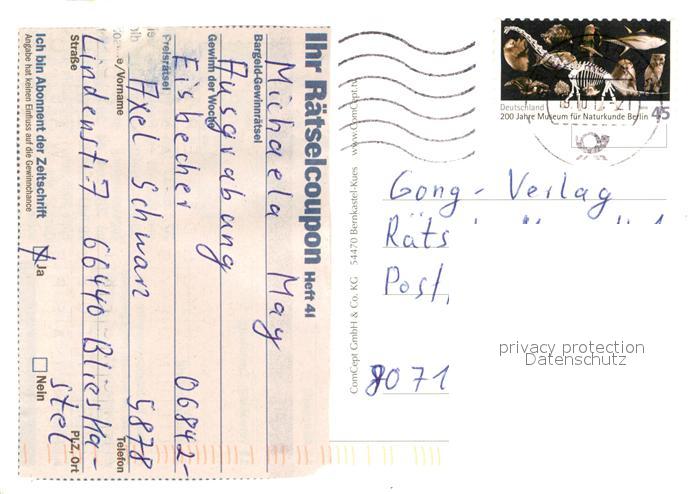 Ihr Rätselcoupon Heft 41
Bargeld-Gewinnrätsel
Michaela May
Gewinn der Woche
Ausgrabung
Freisrätsel
Eisbecher 06842-
/Vorname Telefon
Axel Schwarz 5878
Straße PLZ, Ort
Lindenstr. 7 66440 Blieska-
stel
Ich bin Abonnent der Zeitschrift Ja Nein
Angabe hat keinen Einfluss auf die Gewinnchance
ComCept GmbH & Co. KG 54470 Bernkastel-Kues www.ComCept.
Deutschland
200 Jahre Museum für Naturkunde Berlin 45
Gong-Verlag
Räts
Post,
8071
privacy protection
Datenschutz